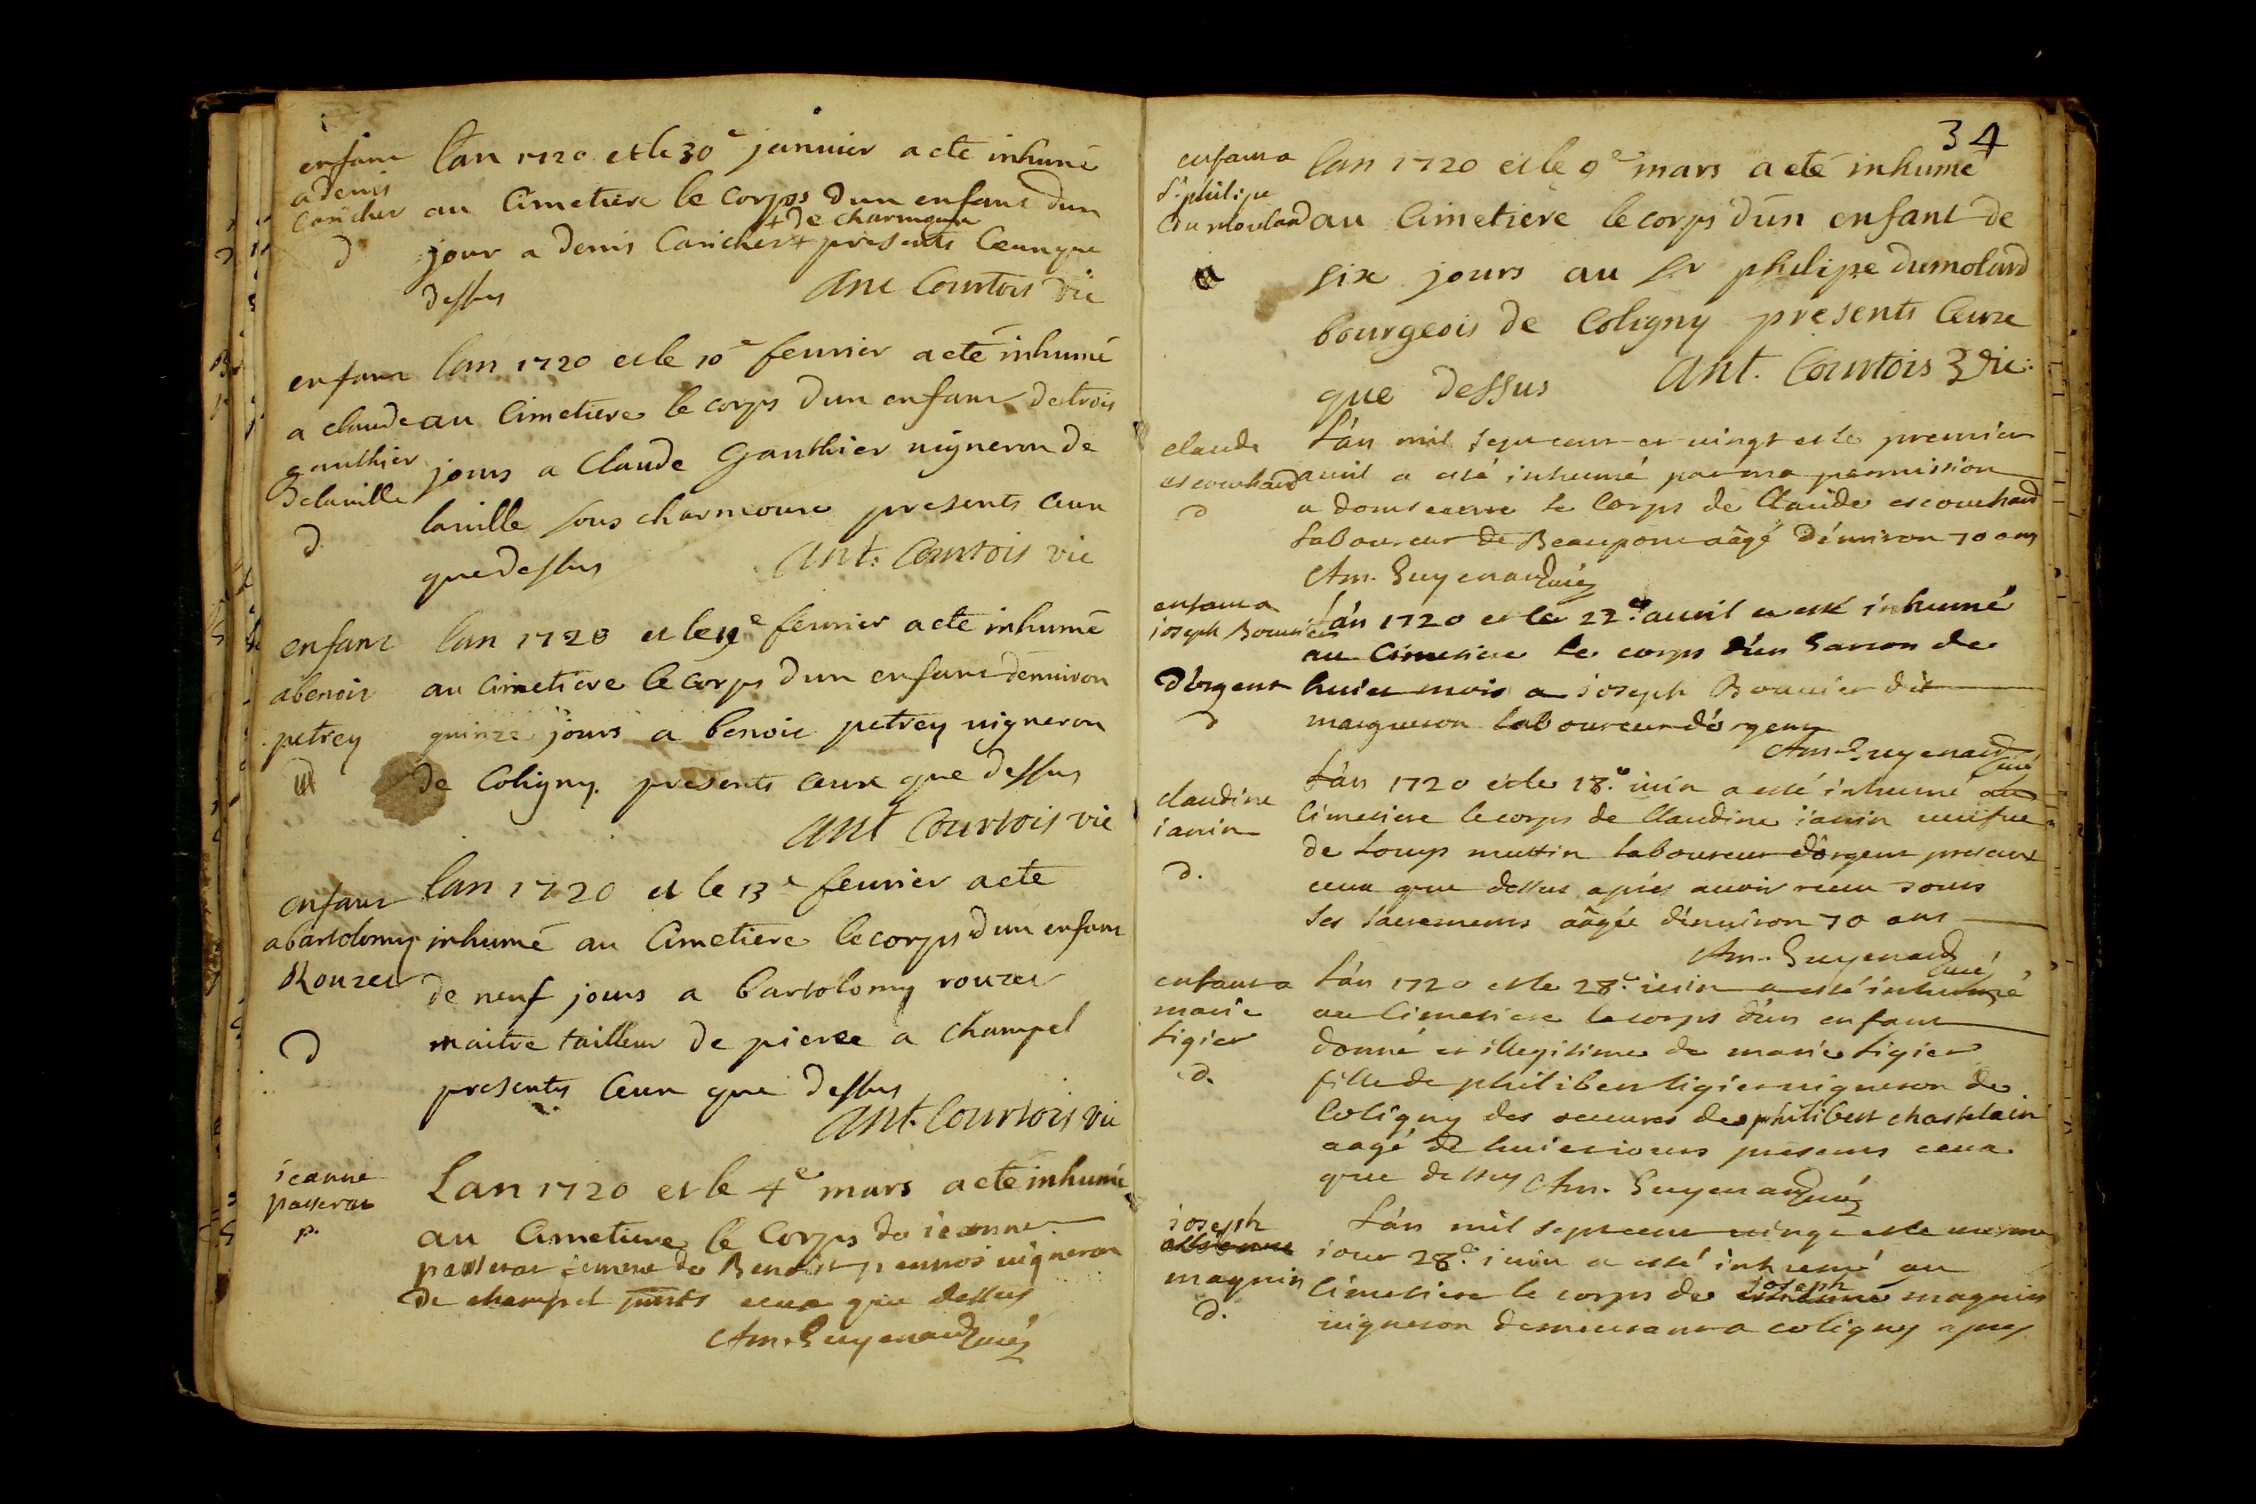 enfant
a denis
caricher
d
lan 1720 et le 30e januier a eté inhumé
au Cimetiere le corps dun enfant dun
+ de charmoux
jour a denis Caricher + presents Ceux que
dessus
Ant Courtois vic
enfant
a claude
gauthier
de laville
d
lan 1720 et le 10e feurier a eté inhumé
au Cimetiere le corps dun enfant de trois
jours a Claude Gauthier uigneron de
lauille sous charmoux presents ceux
que dessus
Ant: Courtois vic
enfant
a benoit
petrey
d
lan 1720 et le 11e feurier a eté inhumé
au cimetiere le corps dun enfant denuiron
quinze jours a benoit petrey uigneron
de Coligny. presents ceux que dessus
Ant Courtois vic
enfant
a bartolomy
Rouzet
d
lan 1720 et le 13e feurier a eté
inhumé au Cimetiere le corps dun enfant
de neuf jours a bartolomy rouzet
maitre tailleur de pierre a champel
presents Ceux que dessus
Ant. Courtois vic
ieanne
passerat
p.
Lan 1720 et le 4e mars a eté inhumé
au Cimetiere le Corps de ieanne
passerat femme de Benoist uigneron
de champel pnts ceux que dessus
Am. Guyenard curé
34
enfant a
Sr philipe
du molard
lan 1720 et le 9e mars a eté inhumé
au Cimetiere le corps d'un enfant de
six jours au sr philipe dumolard
bourgeois de Coligny presents Ceux
que dessus
Ant. Courtois vic:
claude
escouhard
d
L'an mil sept cent et uingt et le premier
auril a esté inhumé par ma permission
a domseurre le Corps de Claude escouhard
Laboureur de Beaupont aâgé d'enuiron 70 ans
Am. Guyenard curé
enfant a
ioseph Bouuier
d'orgent
d
L'an 1720 et le 22.e auril a esté inhumé
au Cimetiere le corps d'un Garson de
huict mois a ioseph Bouuier dit
maigneron laboureur d'orgent
Am. Guyenard curé
claudine
ianin
d.
L'an 1720 et le 18.e iuin a esté inhumé au
Cimetiere le corps de Claudine ianin ueufue
de Loup muttin laboureur d'orgent presents
ceux que dessus apres auoir receu tous
les sacrements aâgée d'enuiron 70 ans
Am. Guyenard curé
enfant a
marie
ligier
d.
L'an 1720 et le 28.e iuin a esté inhumé
au Cimetiere le corps d'un enfant
donné et illegitime de marie ligier
fille de philibert ligier uigneron de
Coligny des oeuures de philibert chastelain
aagé de huict iours presents ceux
que dessus Am. Guyenard curé
ioseph
magnin
d.
L'an mil sept cent uingt et le mesme
iour 28.e iuin a esté inhumé au
ioseph
Cimetiere le corps de magnin
uigneron demeurant a coligny apres